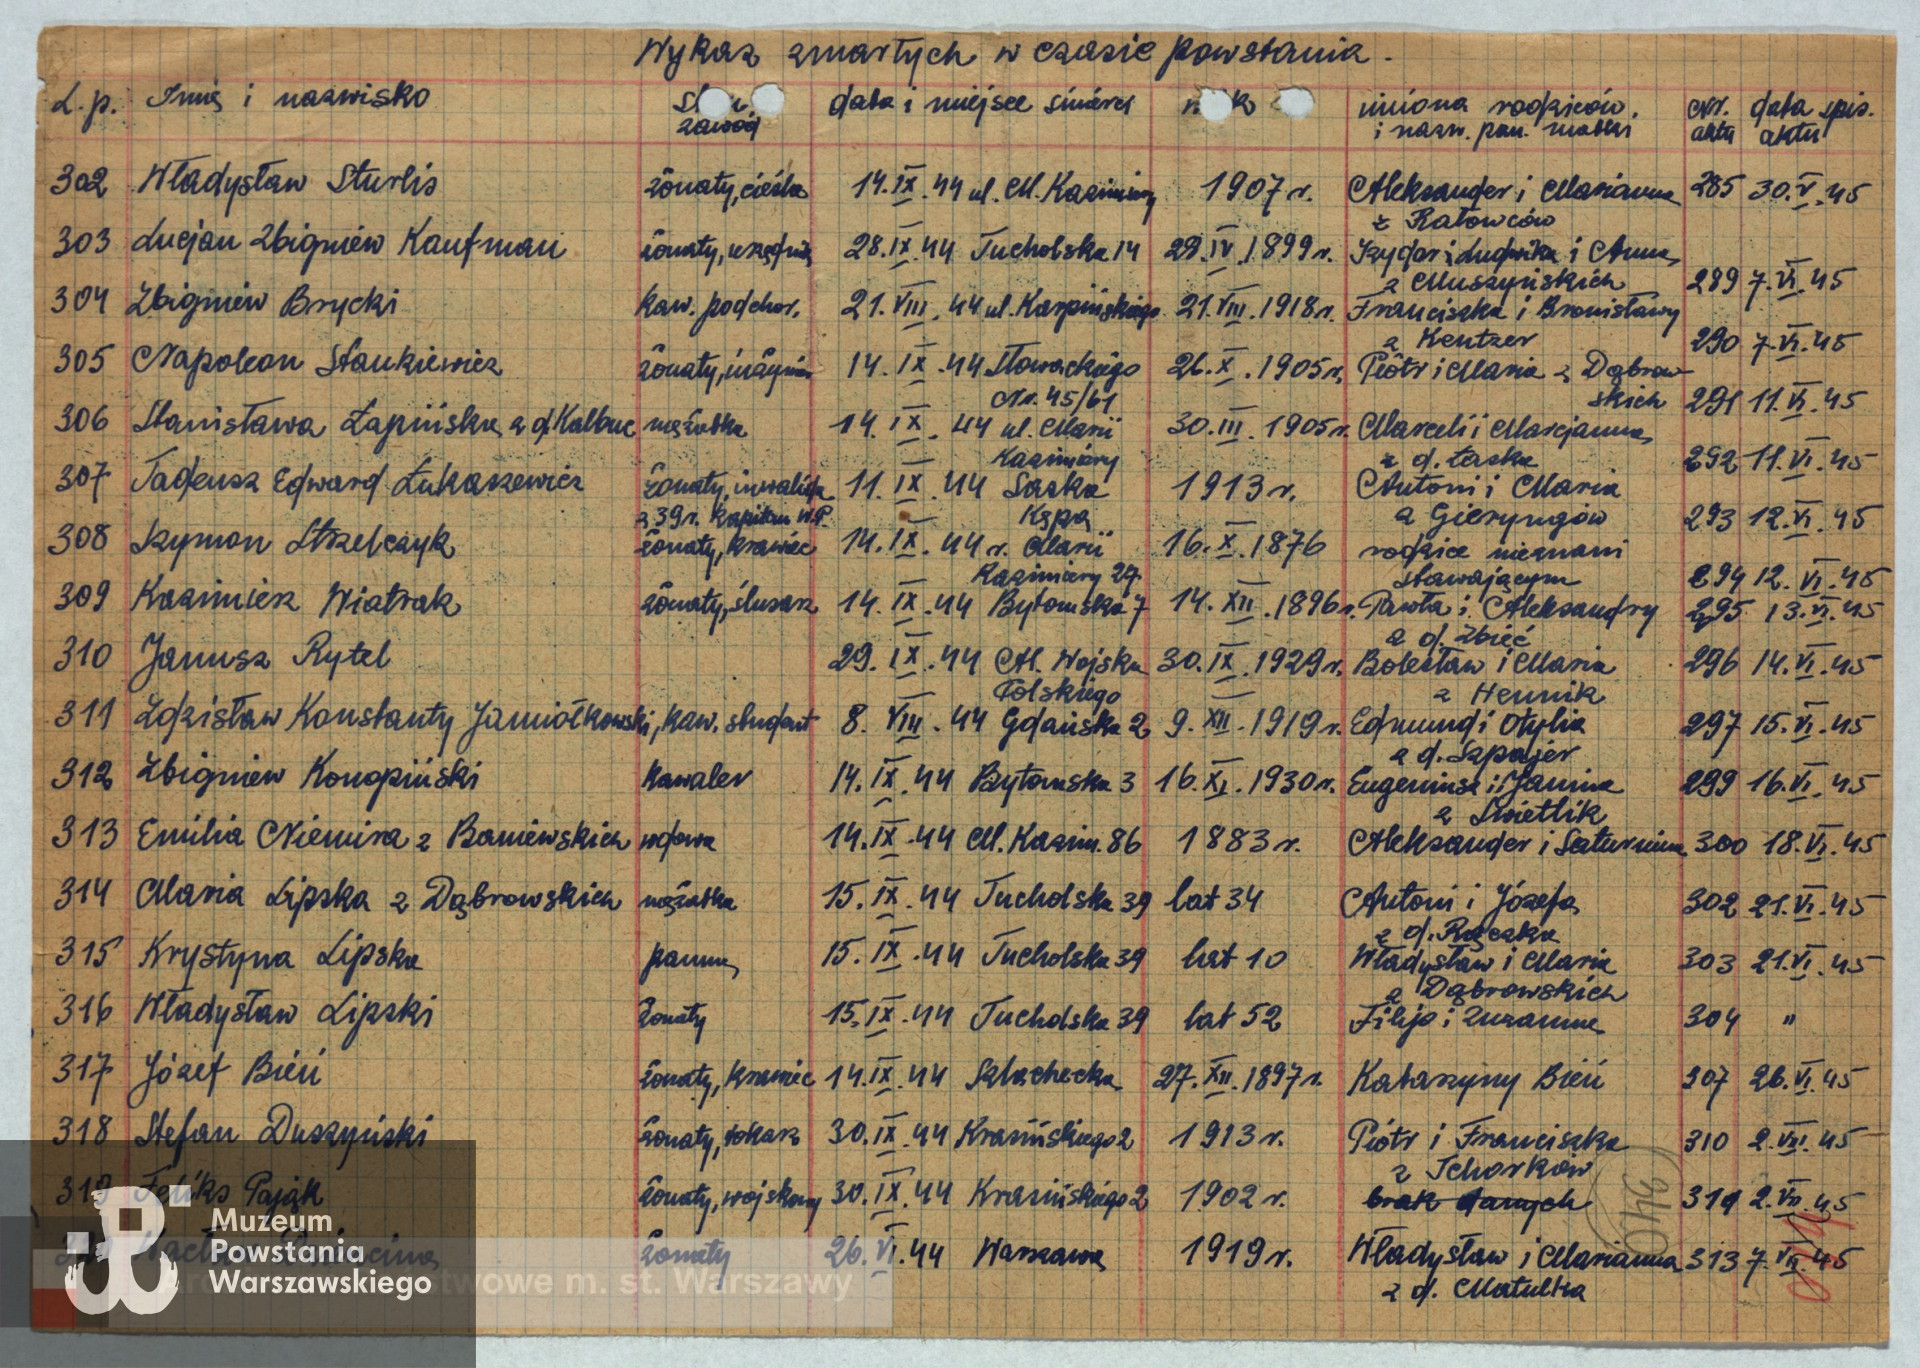 Wykaz zmarłych w czasie powstania.
L.p. Imię i nazwisko stan zawód data i miejsce śmierci imiona rodziców, i nazw. pan. matki Nr. aktu data spis. aktu
302 Władysław Sturlis żonaty, cieśla 14.IX.44 ul. M. Kazimiery 1907 r. Aleksander i Marianna 285 30.V.45
z Ratowców
303 Lucjan Zbigniew Kaufman żonaty, urzędnik 28.IX.44 Tucholska 14 29.IV.1899 r. Izydor i Ludwika i Anna
z Muszyńskich 289 7.VI.45
304 Zbigniew Brycki kaw. podchor. 21.VIII.44 ul. Karpińskiego 21.VIII.1918 r. Franciszka i Bronisławy
z Kentzer 290 7.VI.45
305 Napoleon Stankiewicz żonaty, inżynier 14.IX.44 Słowackiego 26.X.1905 r. Piotr i Maria z Dąbrow-
Nr. 45/61 skich 291 11.VI.45
306 Stanisława Łapińska z d. Kalbuc mężatka 14.IX.44 ul. Marii 30.III.1905 r. Marceli i Marcjanna
Kazimiery z d. Łaska 292 11.VI.45
307 Tadeusz Edward Łukaszewicz żonaty, inwalida 11.IX.44 Saska 1913 r. Antoni i Maria
z 39 r. kapitan W.P. Kępa z Gieryngów 293 12.VI.45
308 Szymon Strzelczyk żonaty, krawiec 14.IX.44 r. Marii 16.X.1876 rodzice nieznani
Kazimiery 27 stawającym 294 12.VI.45
309 Kazimierz Wiatrak żonaty, ślusarz 14.IX.44 Bytomska 7 14.XII.1896 r. Pawła i Aleksandry 295 13.VI.45
z d. Zbieć
310 Janusz Rytel 29.IX.44 Al. Wojska 30.IX.1929 r. Bolesław i Maria 296 14.VI.45
Polskiego z Hennik
311 Zdzisław Konstanty Jamiołkowski, kaw. student 8.VIII.44 Gdańska 2 9.XII.1919 r. Edmund i Otylia 297 15.VI.45
z d. Szpajer
312 Zbigniew Konopiński kawaler 14.IX.44 Bytomska 3 16.XI.1930 r. Eugeniusz i Janina 299 16.VI.45
z Świetlik
313 Emilia Niemira z Baniewskich wdowa 14.IX.44 M. Kazim. 86 1883 r. Aleksander i Saturnina 300 18.VI.45
314 Maria Lipska z Dąbrowskich mężatka 15.IX.44 Tucholska 39 lat 34 Antoni i Józefa 302 21.VI.45
z d. Rączka
315 Krystyna Lipska panna 15.IX.44 Tucholska 39 lat 10 Władysław i Maria 303 21.VI.45
z Dąbrowskich
316 Władysław Lipski żonaty 15.IX.44 Tucholska 39 lat 52 Filip i Zuzanna 304 "
317 Józef Bień żonaty, krawiec 14.IX.44 Szlachecka 27.XII.1897 r. Katarzyny Bień 307 26.VI.45
318 Stefan Duszyński żonaty, tokarz 30.IX.44 Krasińskiego 2 1913 r. Piotr i Franciszka 310 2.VII.45
z Tchorków
319 Feliks Pająk żonaty, wojskowy 30.IX.44 Krasińskiego 2 1902 r. brak danych 311 2.VII.45
żonaty 26.VI.44 Warszawa 1919 r. Władysław i Marianna 313 7.VII.45
z d. Matulka
Muzeum
Powstania
Warszawskiego
m. st. Warszawy